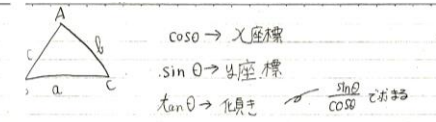 A
c b
a C
cosθ → x座標
sinθ → y座標
tanθ → 傾き sinθ/cosθ で求まる